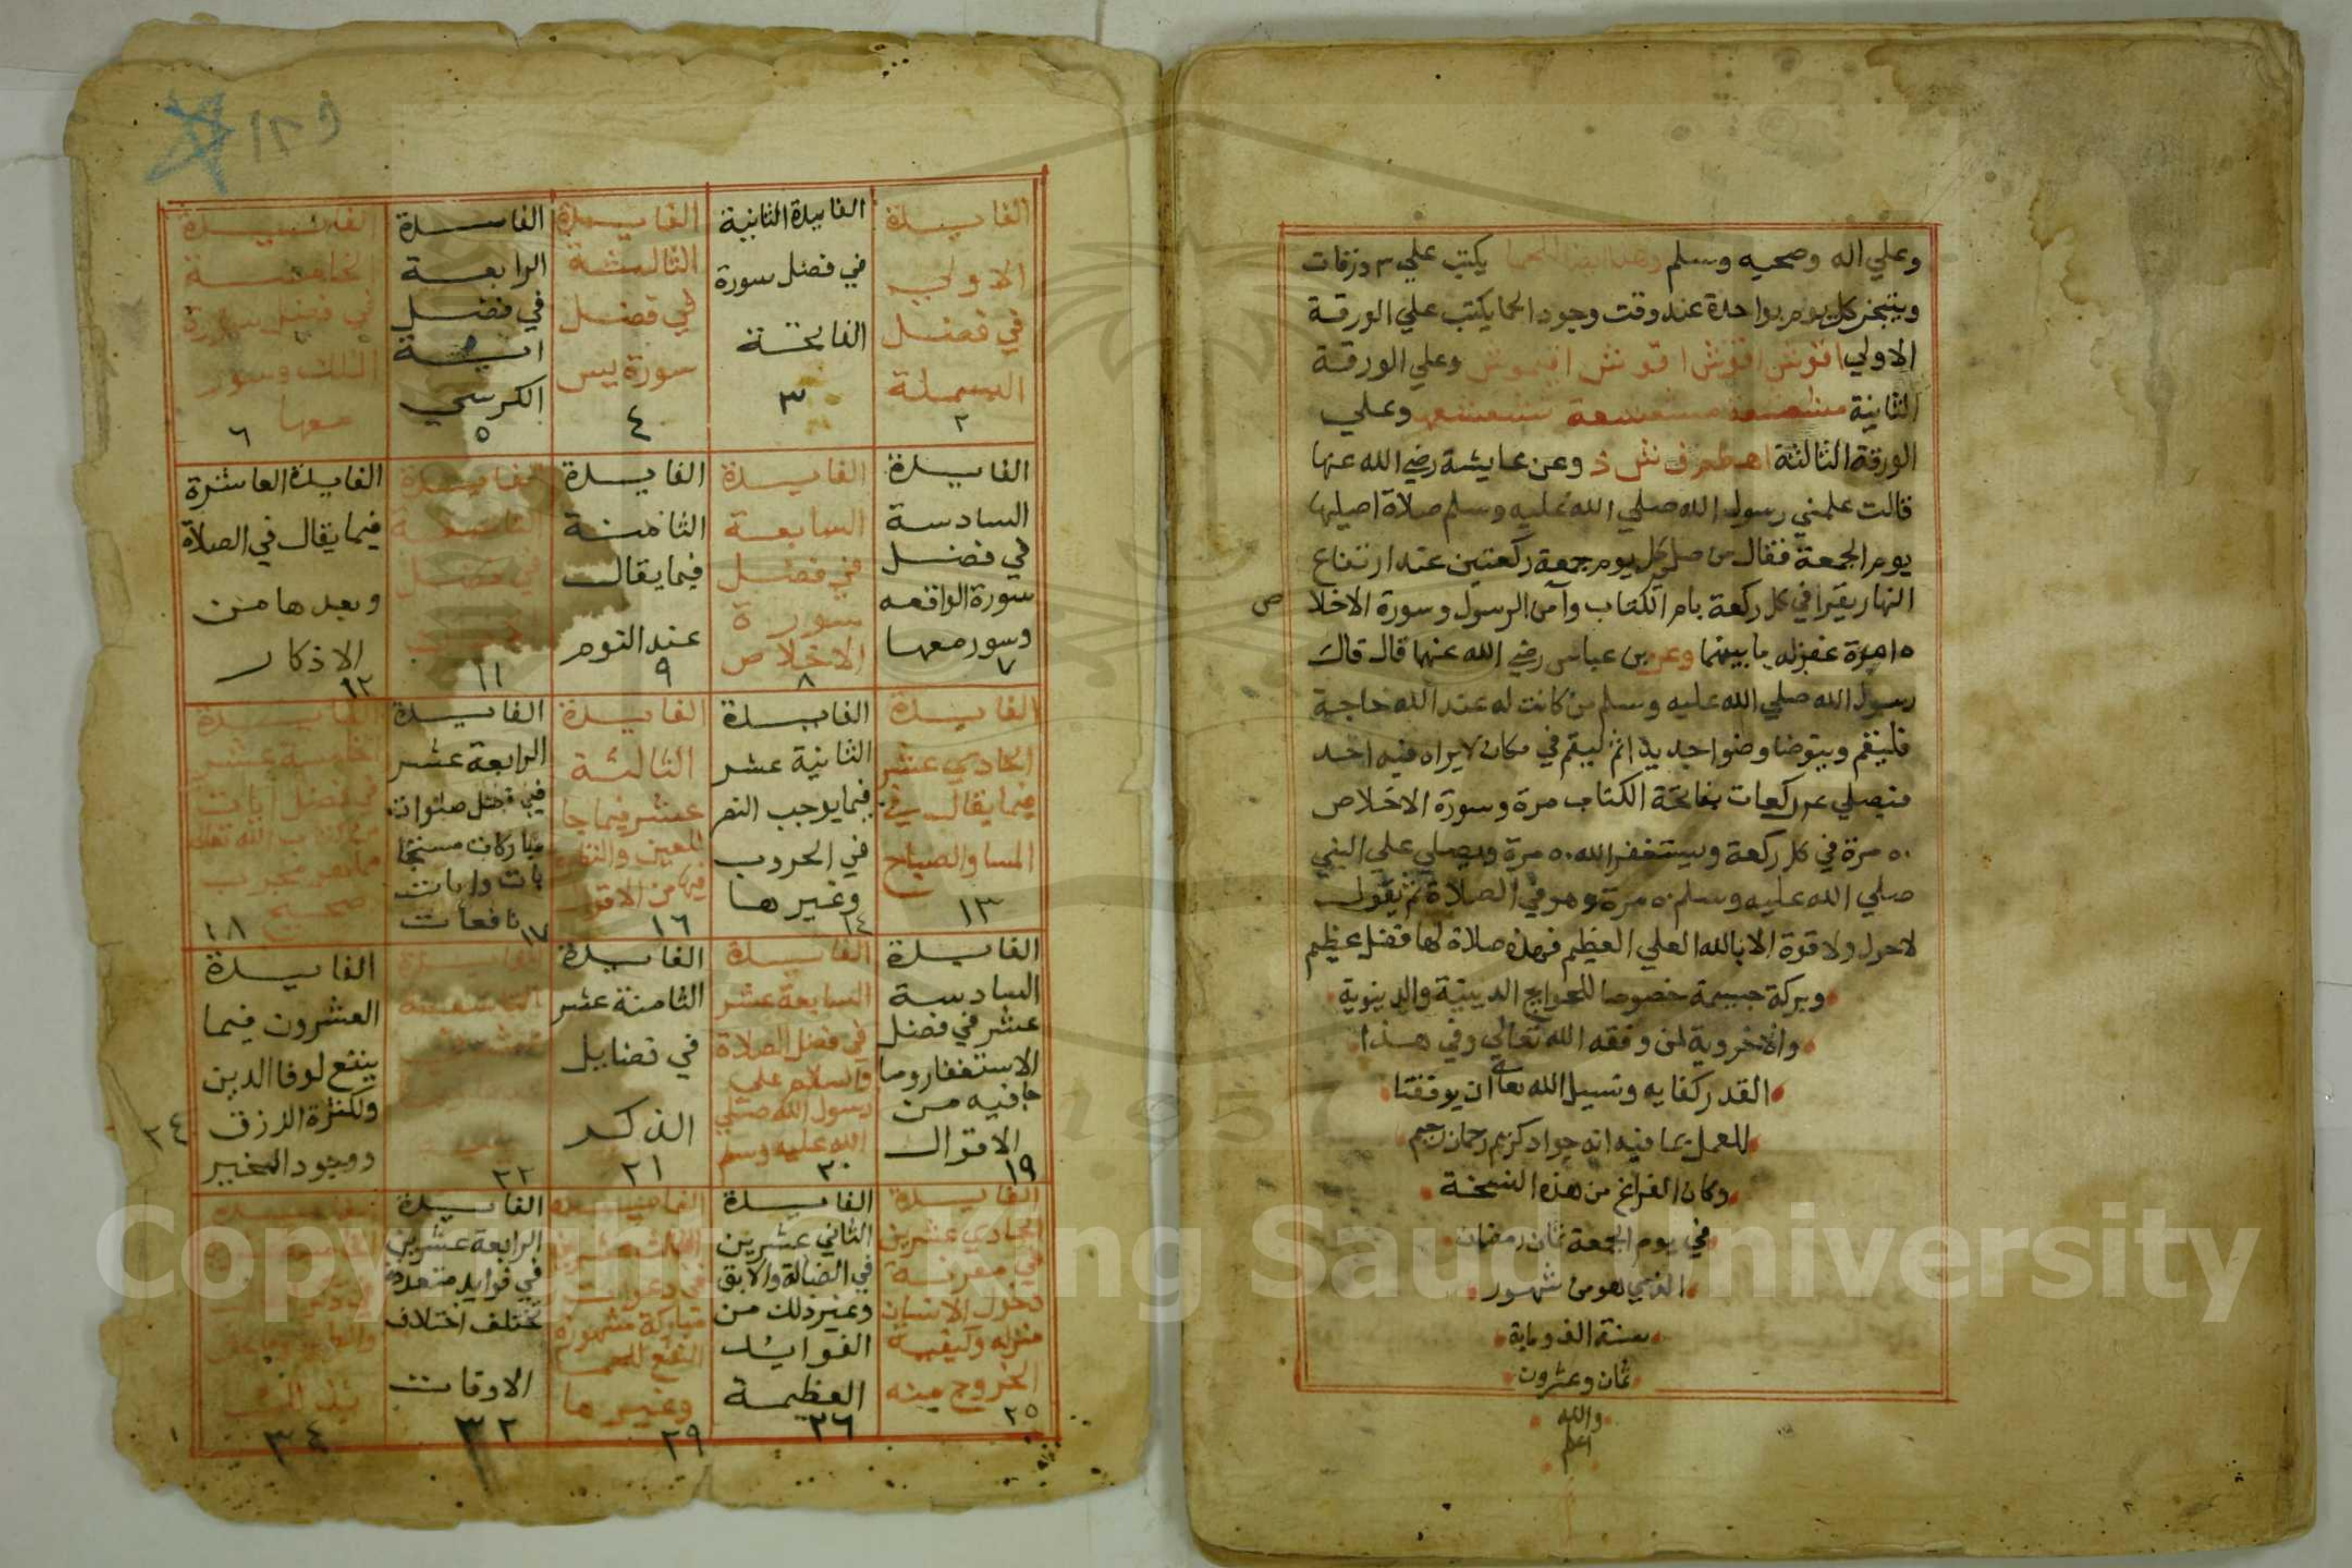 وعلي اله وصحبه وسلم وهذا ايضا للحما يكتب علي ٣ ورقات
ويتبخر كل يوم بواحدة عند وقت وجود الحما يكتب علي الورقة
الاولي وعلي الورقة
الثانية وعلي
الورقة الثالثة وعن عايشة رضي الله عنها
قالت علمني رسول الله صلي الله عليه وسلم صلاة اصليها
يوم الجمعة فقال من صلي كل يوم جمعة ركعتين عند ارتفاع
النهار يقرا في كل ركعة بام الكتاب وآمن الرسول وسورة الاخلا
ص
١٥ مرة غفر له ما بينهما وعن بن عباس رضي الله عنهما قال قال
رسول الله صلي الله عليه وسلم من كانت له عند الله حاجة
فليقم ويتوضا وضوا جديدا ثم ليقم في مكان لا يراه فيه احد
فيصلي ركعات بفاتحة الكتاب مرة وسورة الاخلاص
٥٠ مرة في كل ركعة ويستغفر الله ٥٠ مرة ويصلي علي النبي
صلي الله عليه وسلم ٥٠ مرة وهو في الصلاة ثم يقول
لا حول ولا قوة الا بالله العلي العظيم فهذه صلاة لها فضل عظيم
وبركة جسيمة خصوصا للحوايج الدينية والدنيوية
والاخروية لمن وفقه الله تعالي وفي هذا
القدر كفايه ونسيل الله تعالي ان يوفقنا
للعمل بما فيه انه جواد كريم رحمان رحيم
وكان الفراغ من هذه النسخة
في يوم الجمعة ثمان رمضان
الذي هو من شهور
سنة الف وماية
ثمان وعشرون
والله
اعلم
١٢٩
الفايدة
الاولي
في فضل
البسملة
٢
الفايدة الثانية
في فضل سورة
الفاتحة
٣
الفايدة
الثالثة
في فضل
سورة يس
٤
الفايدة
الرابعة
في فضل
اية
الكرسي
٥
الفايدة
الخامسة
في فضل سورة
الملك وسور
معها
٦
الفايدة
السادسة
في فضل
سورة الواقعه
وسور معها
٧
الفايدة
السابعة
في فضل
سورة
الاخلاص
٨
الفايدة
الثامنة
فيما يقال
عند النوم
٩
الفايدة
التاسعة
في فضل
١١
الفايدة العاشرة
فيما يقال في الصلاة
وبعدها من
الاذكار
١٢
الفايدة
الحادي عشر
فيما يقال في
المسا والصباح
١٣
الفايدة
الثانية عشر
فيما يوجب النصر
في الحروب
وغيرها
١٤
الفايدة
الثالثة
عشر فيما جا
للعين والنظرة
فيها من الاقوال
١٦
الفايدة
الرابعة عشر
في فضل صلوات
مباركات مستجا
بات وايات
نافعات
١٧
الفايدة
الخامسة عشر
في فضل ايات
من كتاب الله تعالي
مجرب
صحيح
١٨
الفايدة
السادسة
عشر في فضل
الاستغفار وما
جا فيه من
الاقوال
١٩
الفايدة
السابعة عشر
في فضل الصلاة
والسلام علي
رسول الله صلي
الله عليه وسلم
٢٠
الفايدة
الثامنة عشر
في فضايل
الذكر
٢١
الفايدة
التاسعة
٢٢
الفايدة
العشرون فيما
ينفع لوفا الدين
ولكثرة الرزق
ووجود الخير
٢٤
الفايدة
الحادي عشرين
في معرفة
دخول الانسان
منزله وكيفية
الخروج منه
٢٥
الفايدة
الثاني عشرين
في الضالة والابق
وغير ذلك من
الفوايد
العظيمة
٢٦
الفايدة
الثالث عشرين
في دعوات
مباركة مشهورة
النفع للحما
وغيرها
٢٩
الفايدة
الرابعة عشرين
في فوايد متعددة
تختلف اختلاف
الاوقات
٣٢
الفايدة
٣٤
Copyright © King Saud University
1957